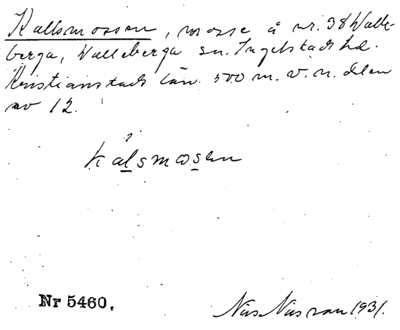 Kallsmossen, mosse å nr. 38 Valle-
berga, Valleberga sn. Ingelstads hd.
Kristianstads län. 500 m. v. n.
av 12.
kálsmosen
Nr 5460.
Nils Nilsson 1931.